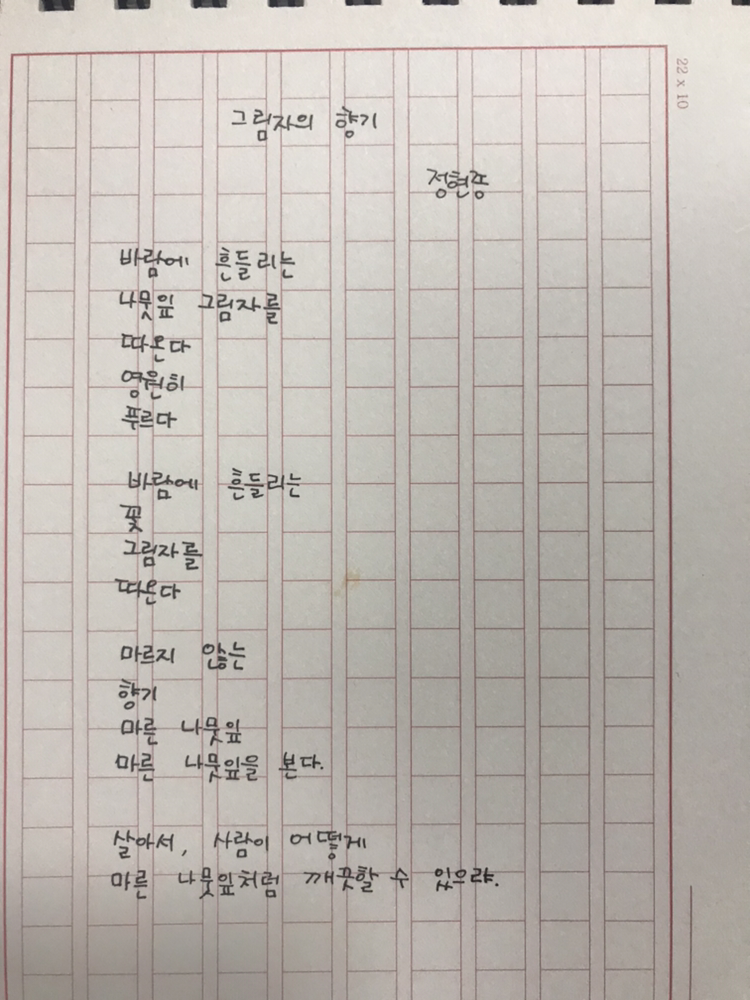 22 x 10
그림자의 향기
정현종
바람에 흔들리는
나뭇잎 그림자를
따온다
영원히
푸르다
바람에 흔들리는
꽃
그림자를
따온다
마르지 않는
향기
마른 나뭇잎
마른 나뭇잎을 본다.
살아서, 사람이 어떻게
마른 나뭇잎처럼 깨끗할 수 있으랴.